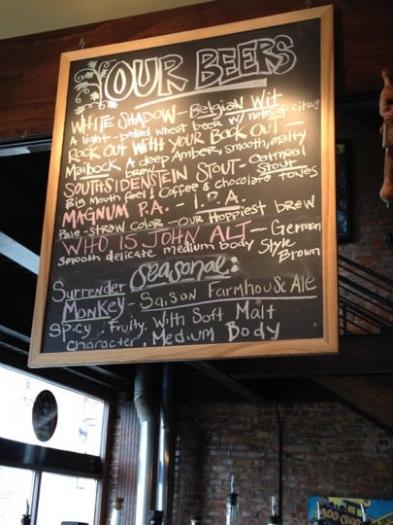 OUR BEERS
WHITE SHADOW - Belgian Wit
A light-bodied wheat beer w/ notes of citrus
ROCK OUT WITH YOUR BOCK OUT -
Maibock A deep Amber, smooth, malty
brew
SOUTHSIDENSTEIN STOUT - Oatmeal
Stout
Big Mouth feel! Coffee & chocolate tones
MAGNUM P.A. - I.P.A.
Pale-straw color - our Hoppiest brew
WHO IS JOHN ALT - German
Style
smooth delicate medium body Brown
Seasonal:
Surrender
MONKEY - Saison Farmhouse Ale
Spicy, Fruity, With Soft Malt
Character, Medium Body